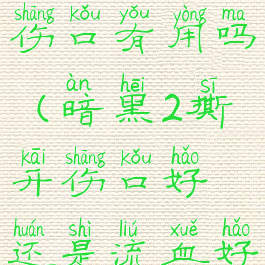 shāng kǒu yǒu yòng ma
伤口有用吗
àn hēi sī
(暗黑2撕
kāi shāng kǒu hǎo
开伤口好
huán shì liú xuě hǎo
还是流血好